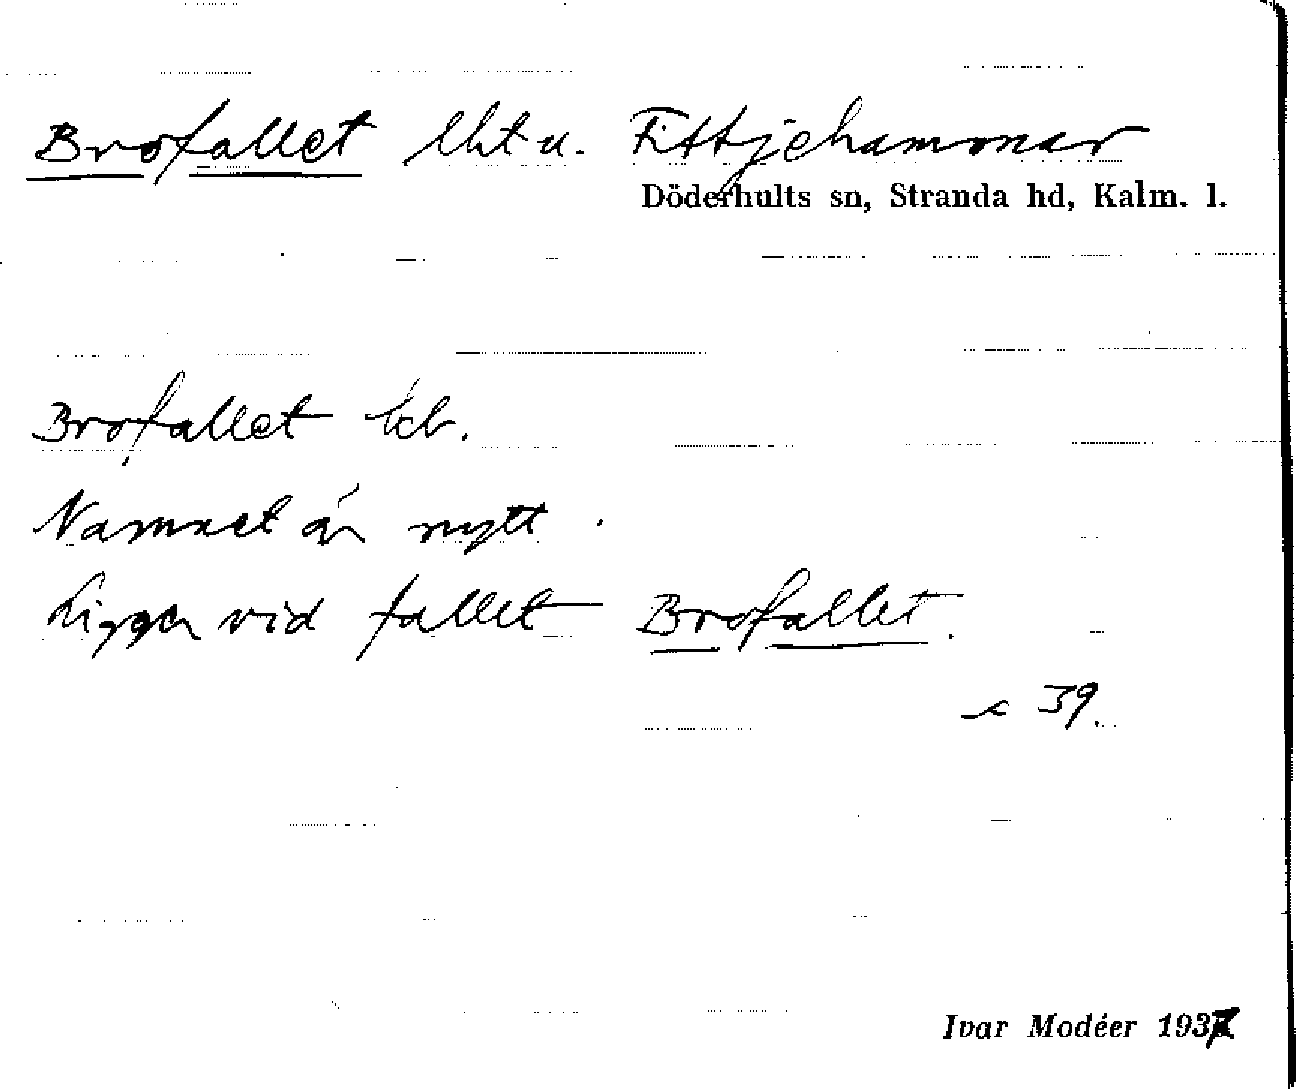 Brofallet lht u. Fittjehammar
Döderhults sn, Stranda hd, Kalm. l.
Brofallet kb.
Namnet är nytt.
Ligger vid fallet Brofallet.
39.
Ivar Modéer 1937